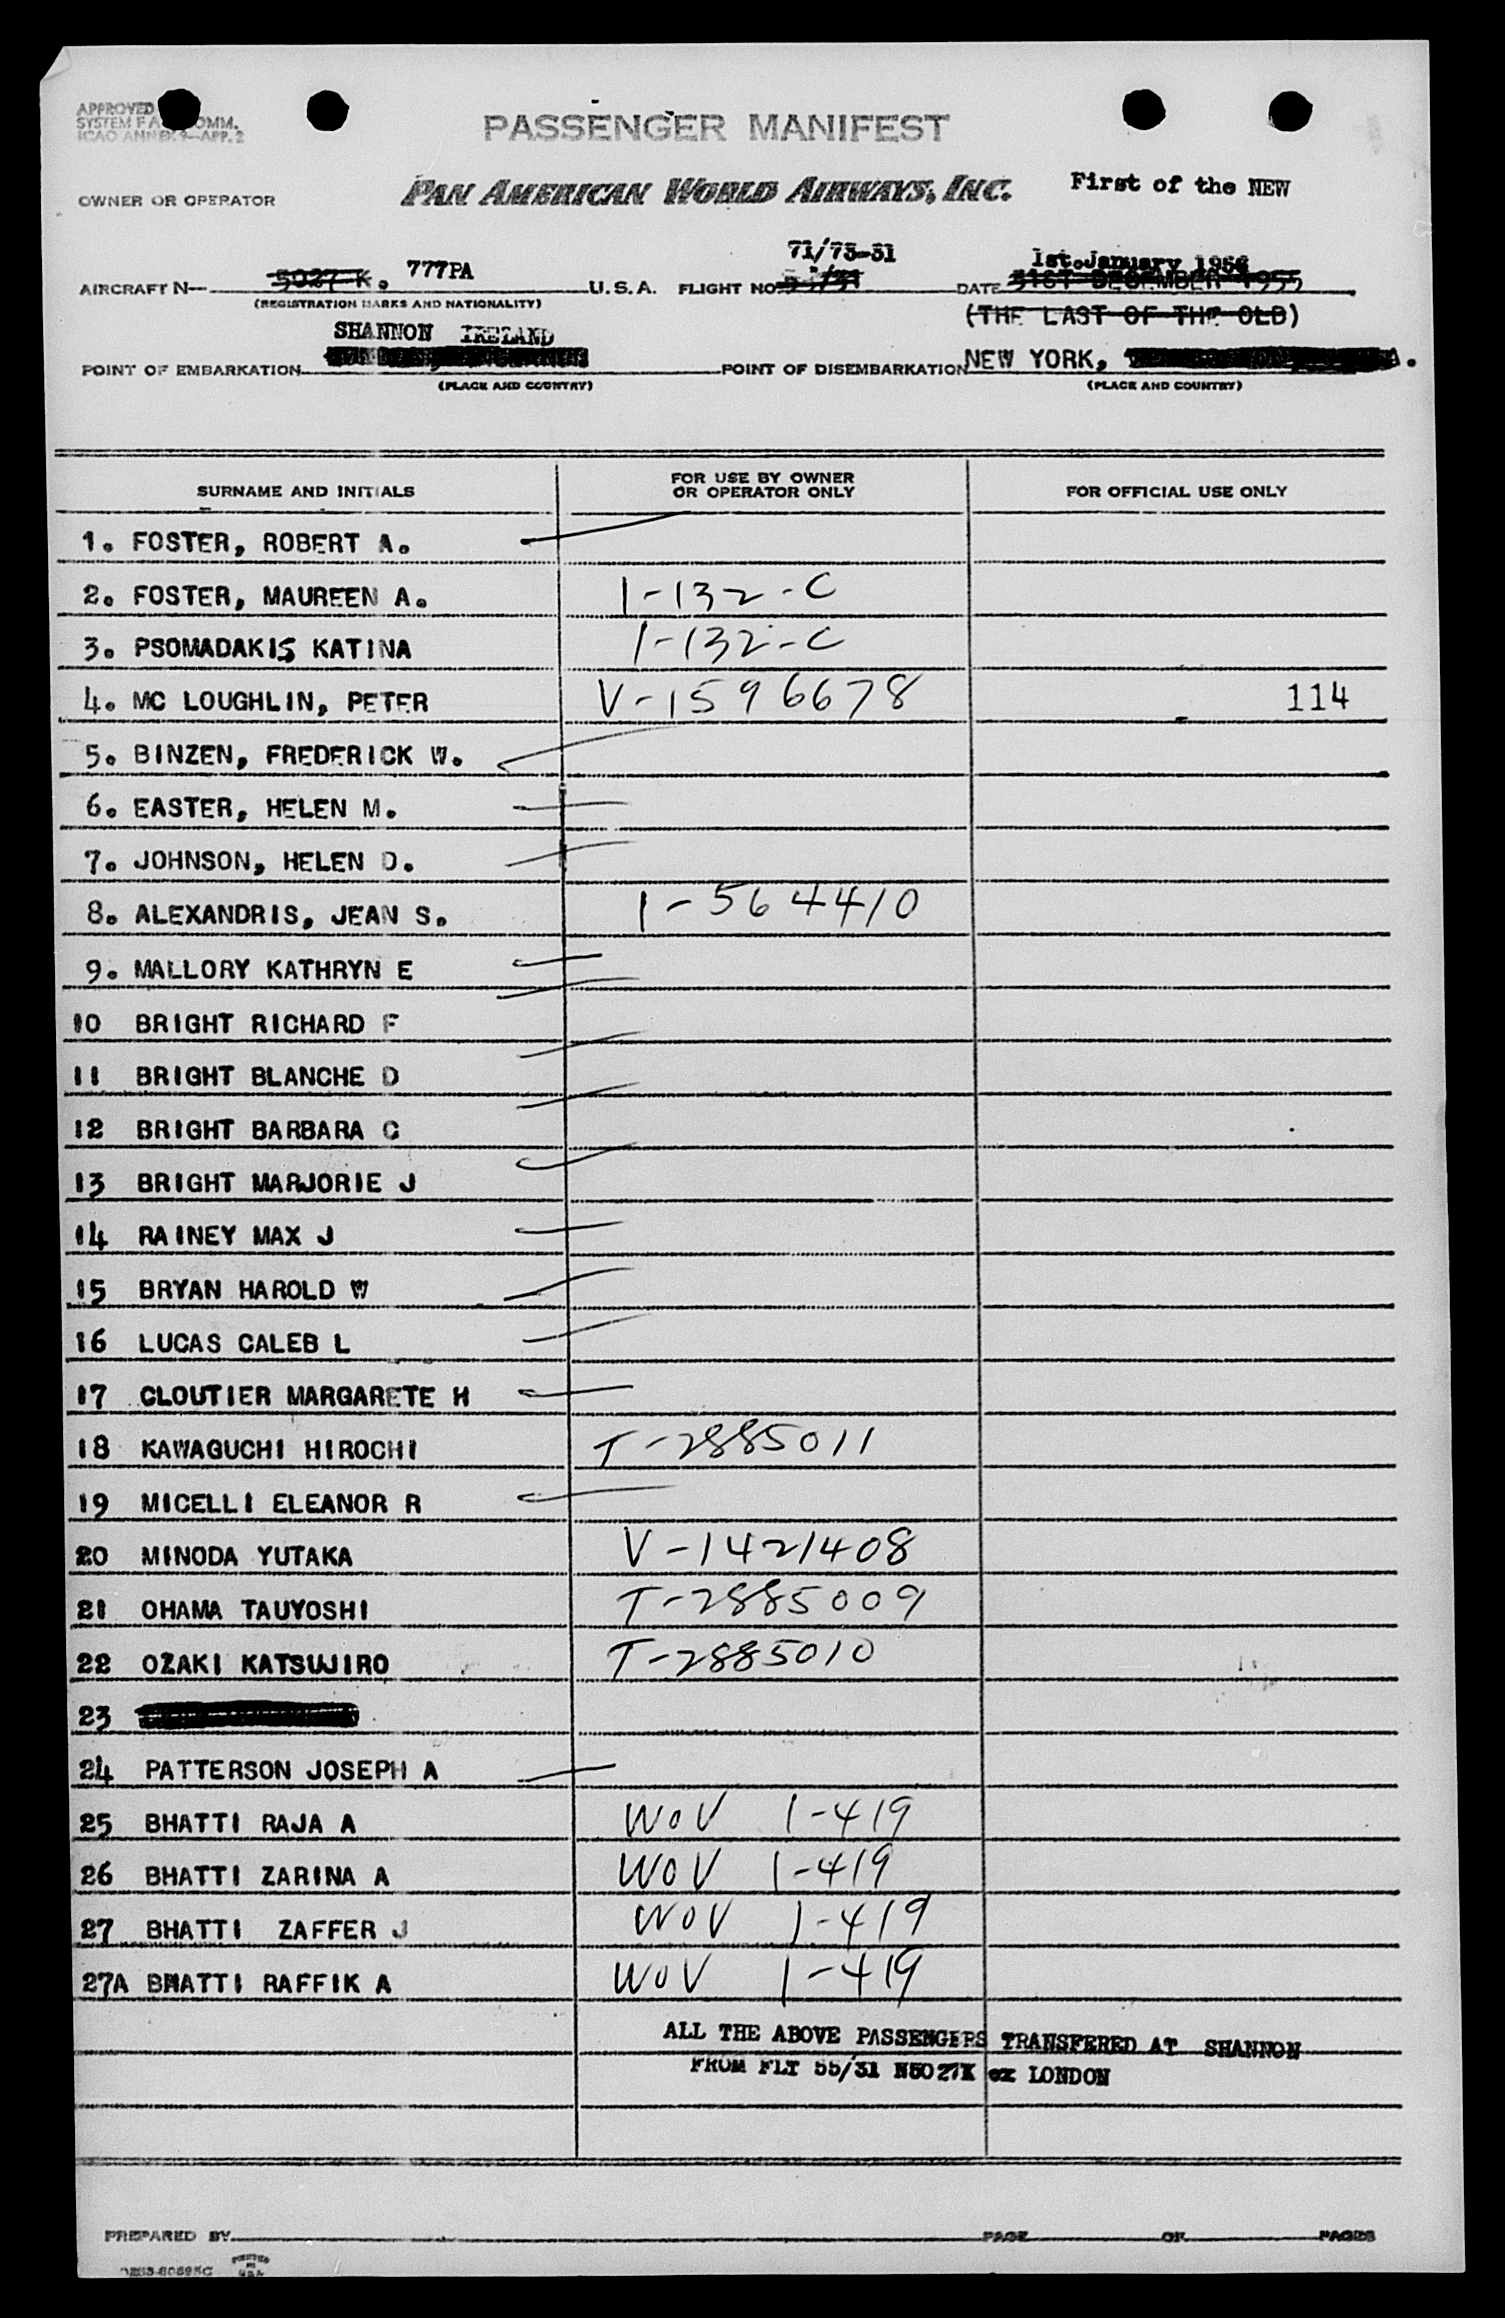 APPROVED
SYSTEM FAL COMM.
ICAO ANNEX 9—APP. 2
PASSENGER MANIFEST
OWNER OR OPERATOR PAN AMERICAN WORLD AIRWAYS, INC. First of the NEW
71/73-31
777PA 1st.January 1956
AIRCRAFT N— 5027 K. U.S.A. FLIGHT NO. 55/31 DATE 31ST DECEMBER 1955
(REGISTRATION MARKS AND NATIONALITY)
(THE LAST OF THE OLD)
SHANNON IRELAND
POINT OF EMBARKATION POINT OF DISEMBARKATION NEW YORK, A.
(PLACE AND COUNTRY) (PLACE AND COUNTRY)
SURNAME AND INITIALS FOR USE BY OWNER OR OPERATOR ONLY FOR OFFICIAL USE ONLY
1. FOSTER, ROBERT A.
2. FOSTER, MAUREEN A. 1-132-C
3. PSOMADAKIS KATINA 1-132-C
4. MC LOUGHLIN, PETER V-1596678 114
5. BINZEN, FREDERICK W.
6. EASTER, HELEN M.
7. JOHNSON, HELEN D.
8. ALEXANDRIS, JEAN S. 1-564410
9. MALLORY KATHRYN E
10 BRIGHT RICHARD F
11 BRIGHT BLANCHE D
12 BRIGHT BARBARA C
13 BRIGHT MARJORIE J
14 RAINEY MAX J
15 BRYAN HAROLD W
16 LUCAS CALEB L
17 CLOUTIER MARGARETE H
18 KAWAGUCHI HIROCHI T-2885011
19 MICELLI ELEANOR R
20 MINODA YUTAKA V-1421408
21 OHAMA TAUYOSHI T-2885009
22 OZAKI KATSUJIRO T-2885010
23
24 PATTERSON JOSEPH A
25 BHATTI RAJA A WOV 1-419
26 BHATTI ZARINA A WOV 1-419
27 BHATTI ZAFFER J WOV 1-419
27A BHATTI RAFFIK A WOV 1-419
ALL THE ABOVE PASSENGERS TRANSFERED AT SHANNON
FROM FLT 55/31 N5027K ex LONDON
PREPARED BY PAGE OF PAGES
PRINTED
IN
U.S.A.